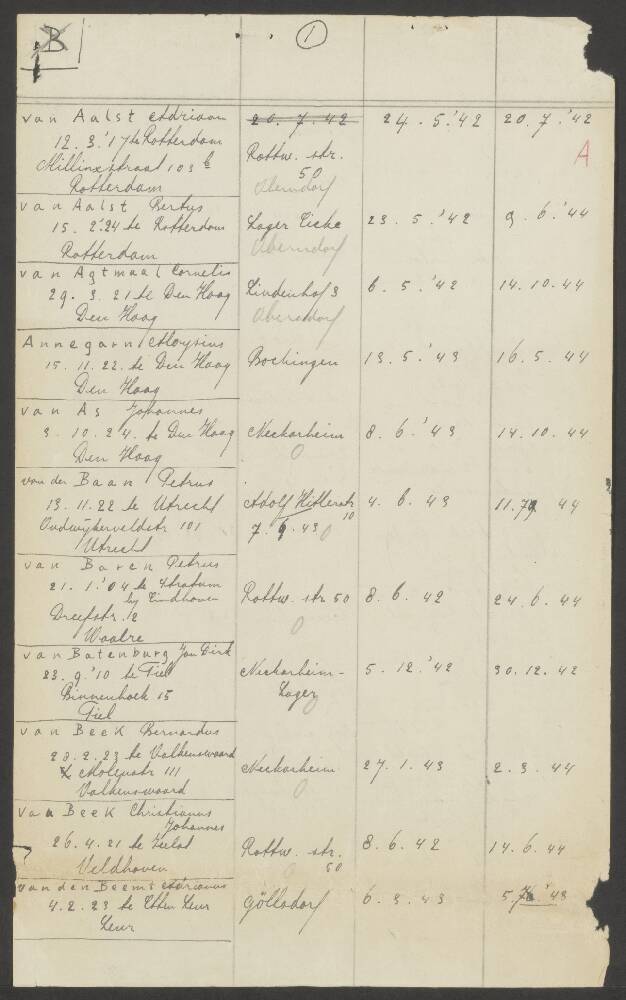 B
1
van Aalst Adriaan 20.7.42 24.5.'42 20.7.'42
12.3.'17 te Rotterdam Rottw. str. A
Millinxstraat 103 b 50
Rotterdam Oberndorf
van Aalst Bertus
15. 2.'24 te Rotterdam Lager Eiche 23.5.'42 9.6.'44
Rotterdam Oberndorf
van Agtmaal Cornelis
29. 3. 21 te Den Haag Lindenhof 3 6.5.'42 14.10.44
Den Haag Oberndorf
Annegarn Aloysius
15. 11. 22. te Den Haag Bochingen 13.5.'43 16.5.44
Den Haag
van As Johannes
3. 10. 24. te Den Haag Neckarheim 8.6.'43 14.10.44
Den Haag O
van der Baan Petrus
13. 11. 22 te Utrecht Adolf Hitlerstr 4.6.43 11. 44
Oudwijkerveldstr 101 10
Utrecht 7.9.43 O
van Baren Petrus
21. 1.'04 te Stratum Rottw. str 50 8.6.42 24.6.44
bij Eindhoven
Dreefstr. 12 O
Waalre
van Batenburg Jan Dirk
23. 9.'10 te Tiel Neckarheim- 5.12.'42 30.12.42
Binnenhoek 15 Lager
Tiel O
van Beek Bernardus
20.2.23 te Valkenswaard
Molenstr 111 Neckarheim 27.1.43 2.3.44
Valkenswaard O
van Beek Christianus
Johannes
26.4.21 te Zeelst Rottw. str. 8.6.42 14.6.44
Veldhoven 50
van den Beemt Adrianus
4.2.23 te Etten Leur Göllsdorf 6.3.43 5. '43
Leur